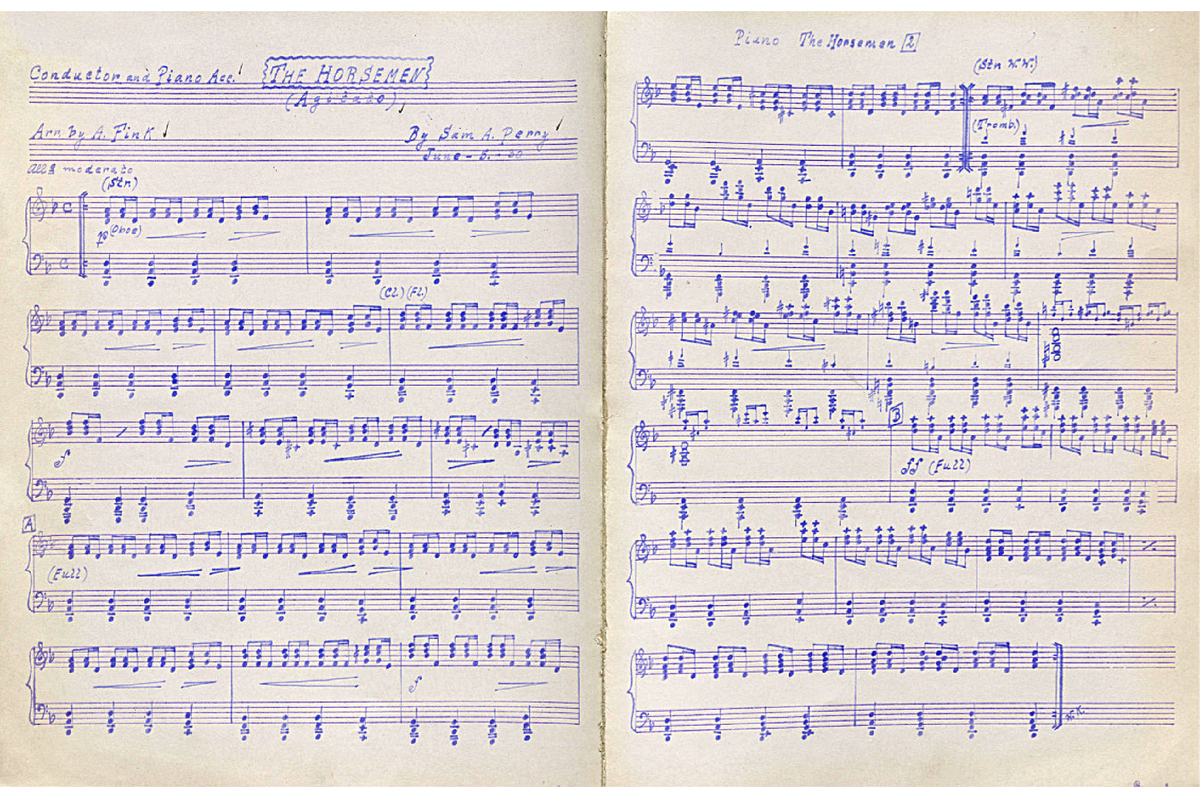 Conductor and Piano Acc.
THE HORSEMEN
(Agitato)
Arr by A. Fink
By Sam A. Perry
June - 5. - 30
All° moderato
(Str)
p (Oboe)
(Cl.) (Fl.)
f
A
(Full)
f
Piano The Horsemen 2
(Str W.W.)
(Tromb.)
B
ff (Full)